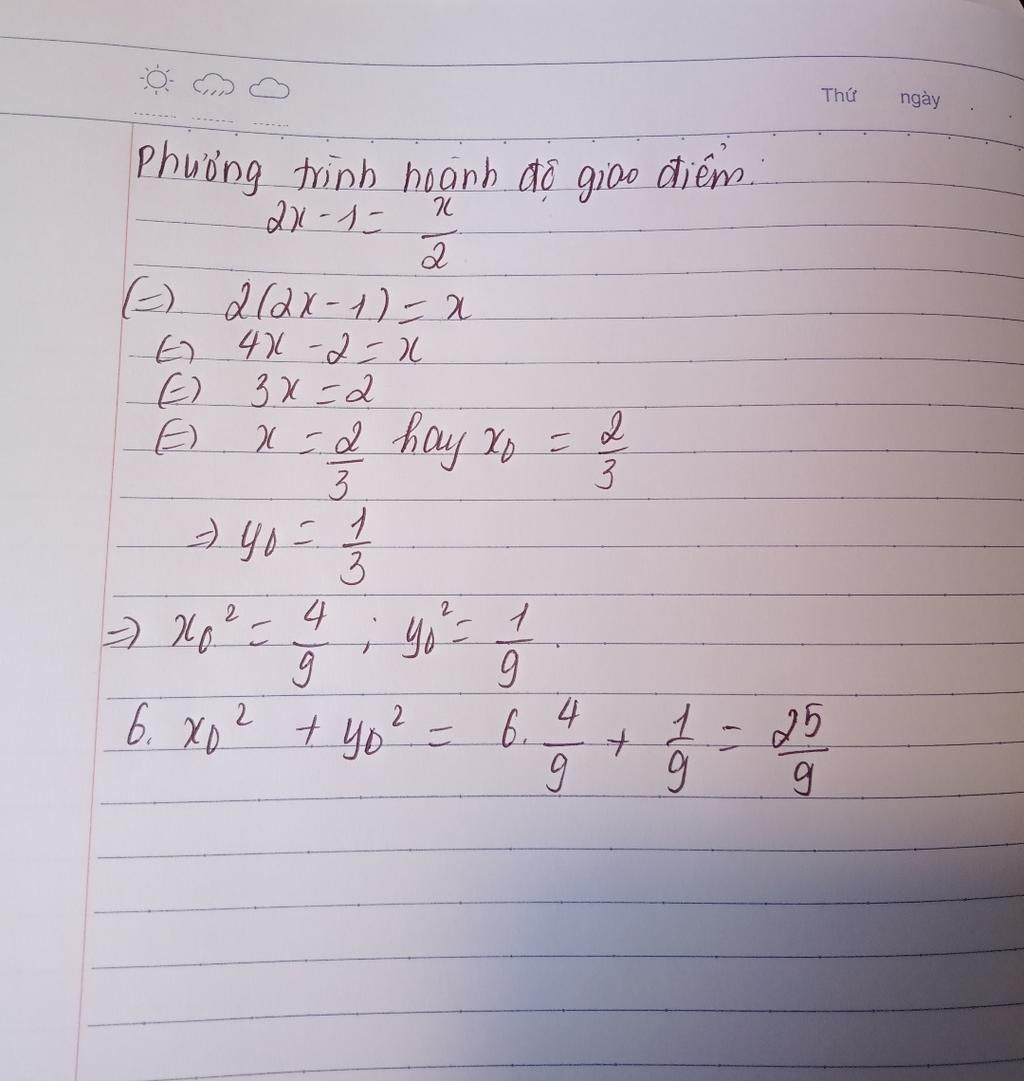 Thứ ngày
Phương trình hoành độ giao điểm:
2x - 1 = x/2
(=) 2(2x - 1) = x
(=) 4x - 2 = x
(=) 3x = 2
(=) x = 2/3 hay x₀ = 2/3
=> y₀ = 1/3
=> x₀² = 4/9 ; y₀² = 1/9.
6. x₀² + y₀² = 6. 4/9 + 1/9 = 25/9